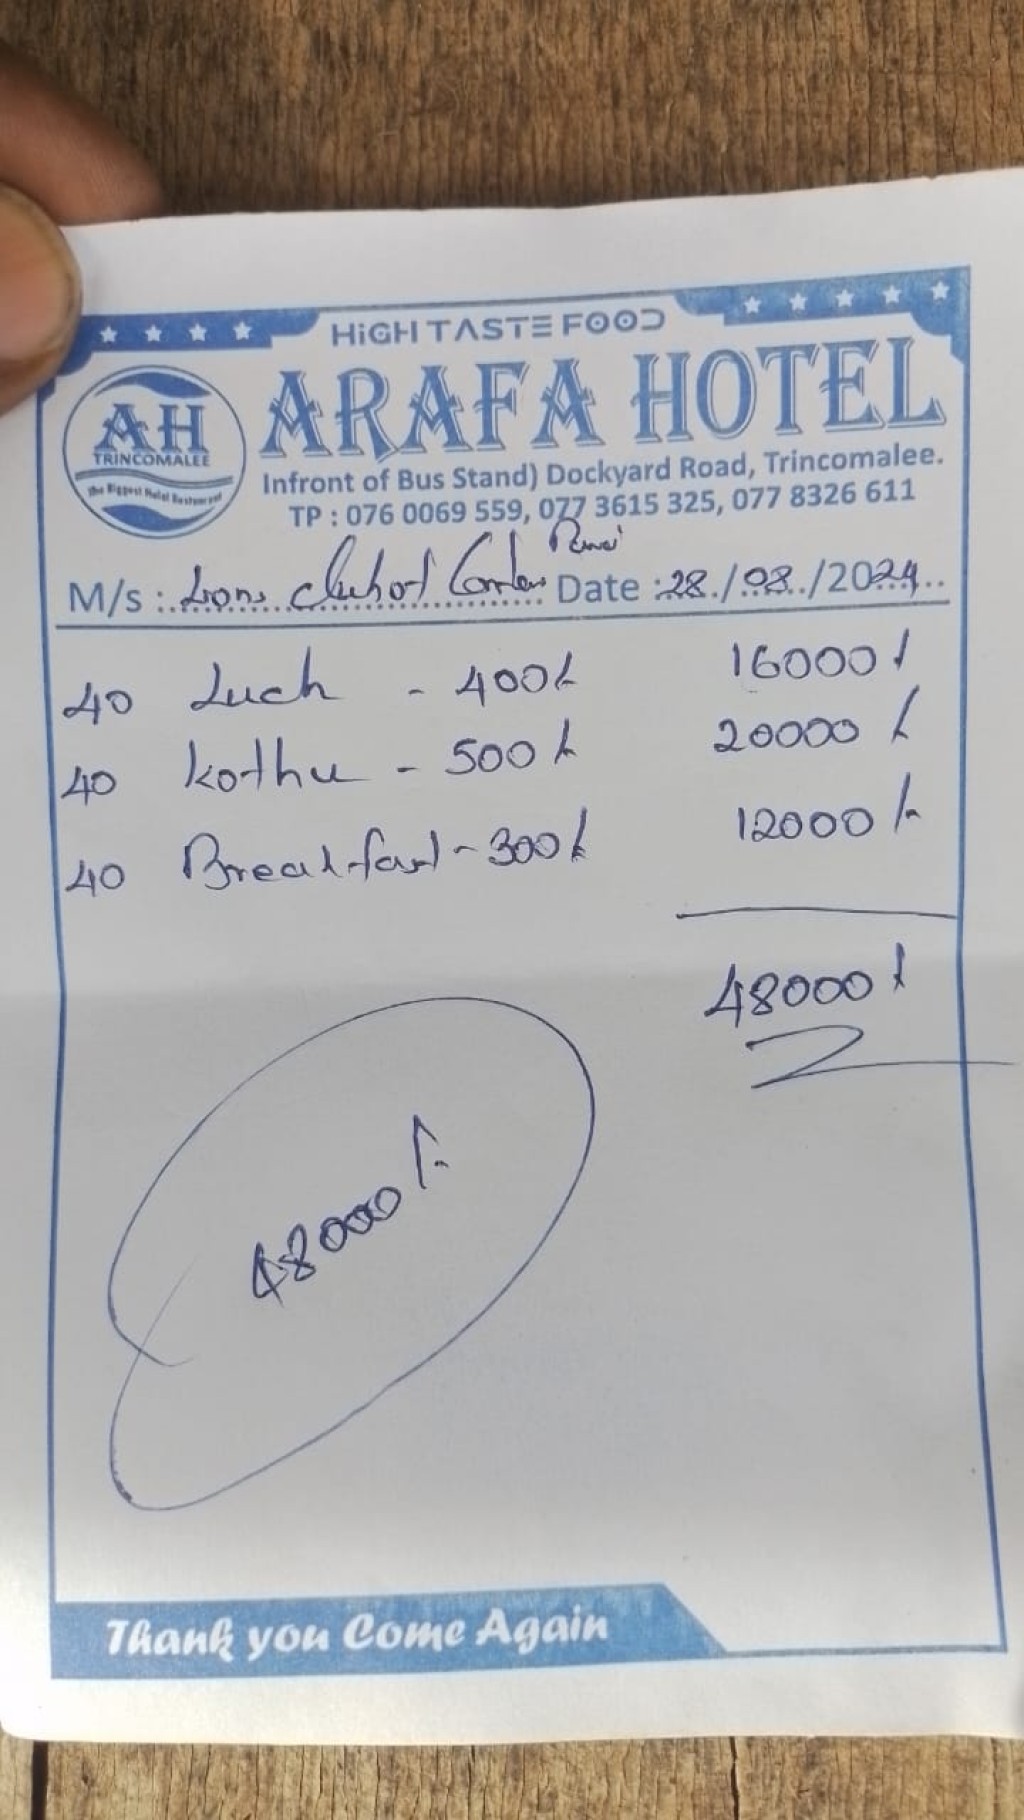 HiGH TASTE FOOD
ARAFA HOTEL
AH
TRINCOMALEE
The Biggest Halal Restaurant
Infront of Bus Stand) Dockyard Road, Trincomalee.
TP : 076 0069 559, 077 3615 325, 077 8326 611
M/s : Lions Club of Date : 28/08/2024
40 Luch - 400/- 16000/-
40 Kothu - 500/- 20000/-
40 Breakfast - 300/- 12000/-
48000/-
48000/-
Thank you Come Again